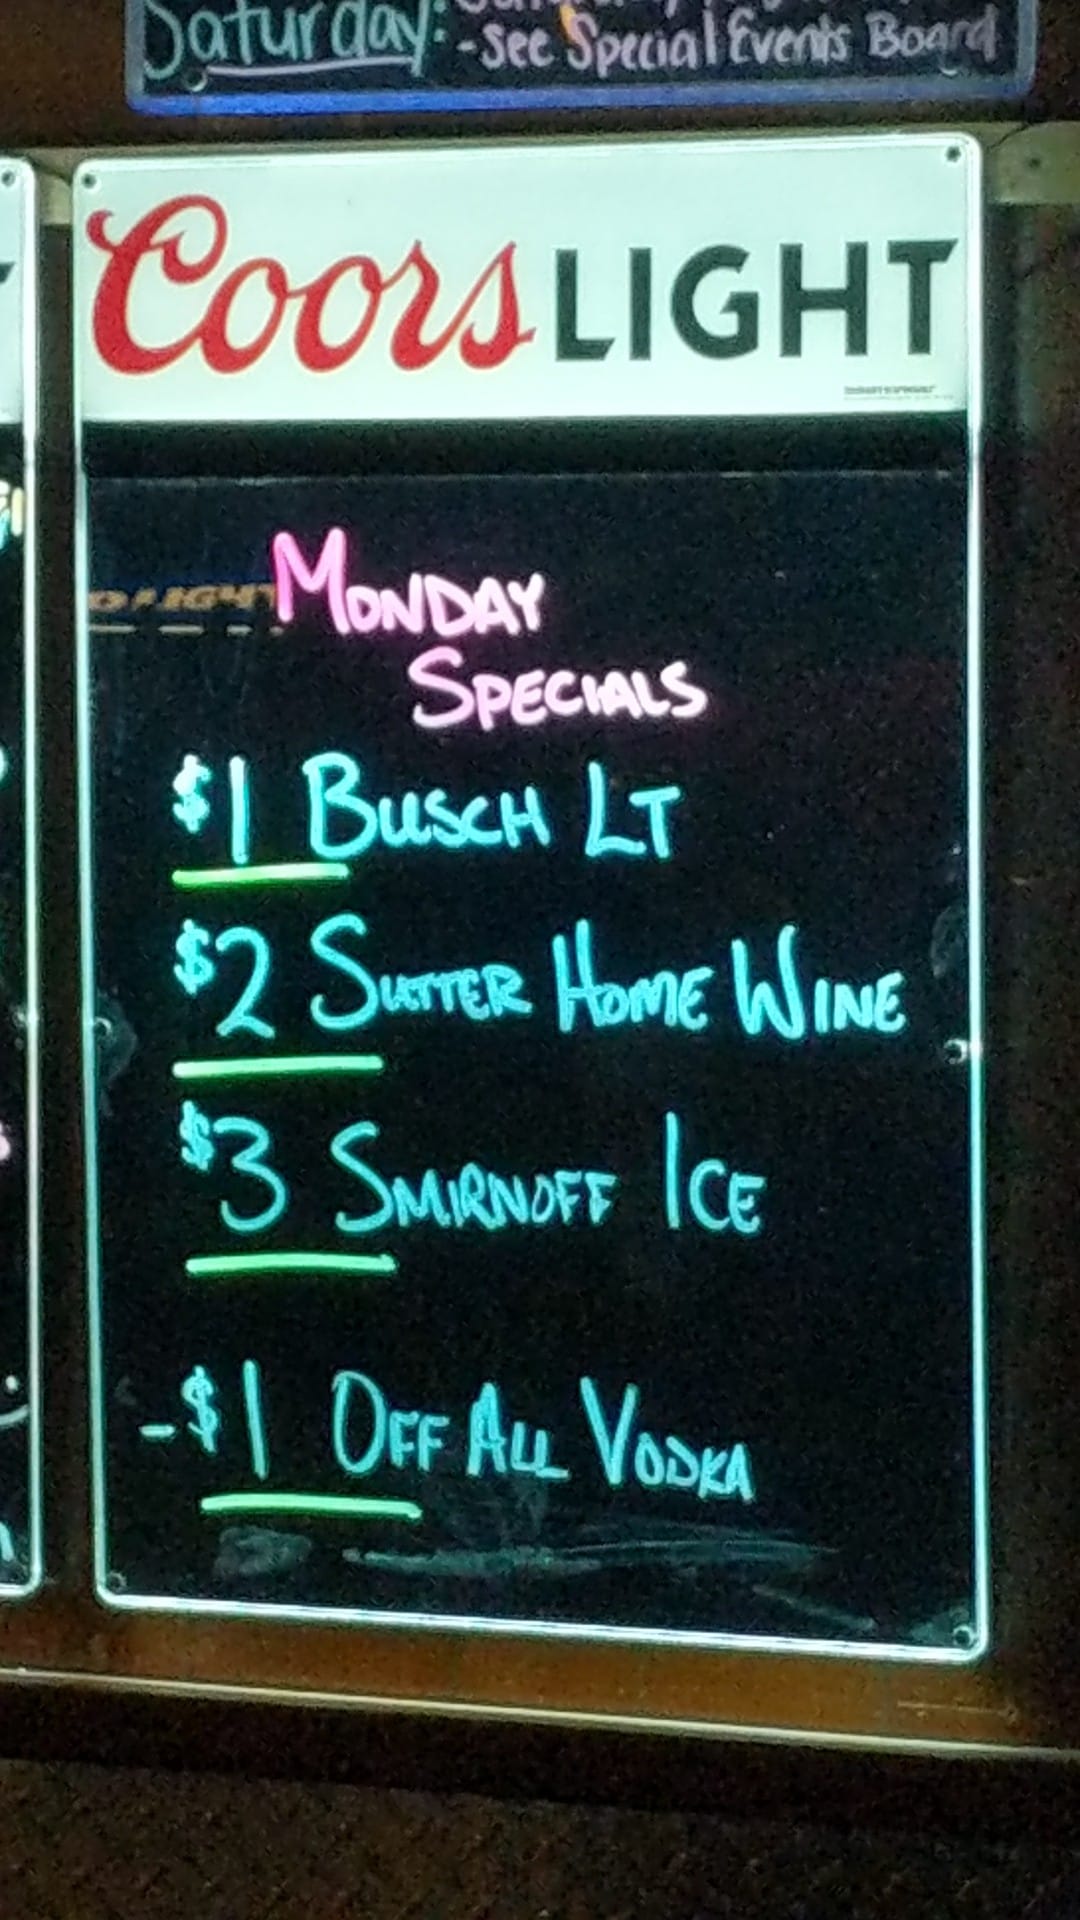 Saturday:
-See Special Events Board
Coors LIGHT
MONDAY
SPECIALS
$1 BUSCH LT
$2 SUTTER HOME WINE
$3 SMIRNOFF ICE
-$1 OFF ALL VODKA